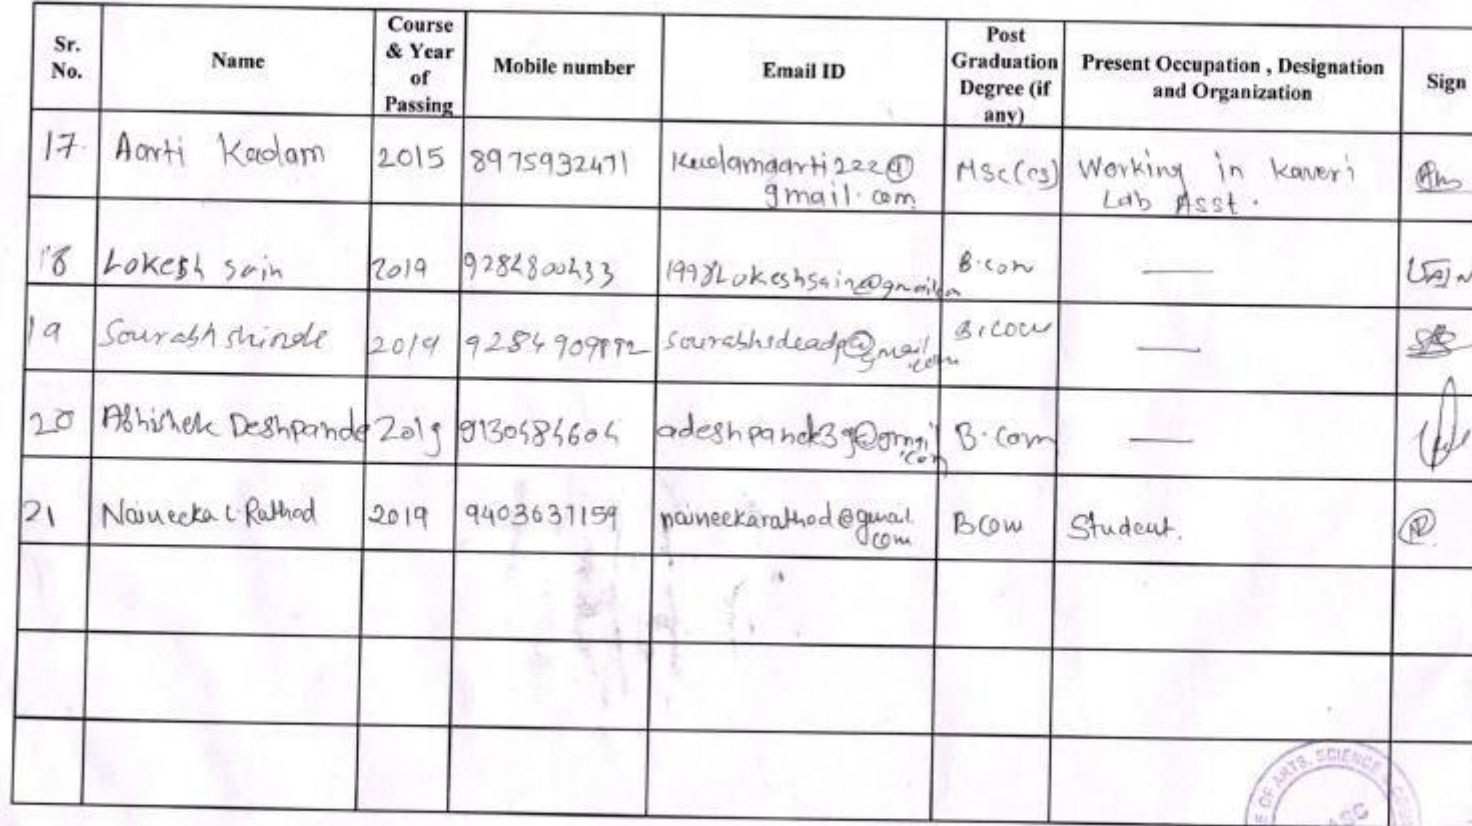 Sr. No. Name Course & Year of Passing Mobile number Email ID Post Graduation Degree (if any) Present Occupation , Designation and Organization Sign
17. Aarti Kadam 2015 8975932471 Kadamaarti222@ gmail.com MSc(cs) Working in Kaveri Lab Asst.
18 Lokesh Sain 2019 9284800433 1998Lokeshsain@gmail B.com — SAIN
19 Sourabh shinde 2019 B.com —
20 Abhishek Deshpande 2019 9130484604 B.Com —
21 Naineeka Rathod 2019 9403631159 naineekarathod@gmail.com BCom Student.
OF ARTS, SCIENCE
ASC